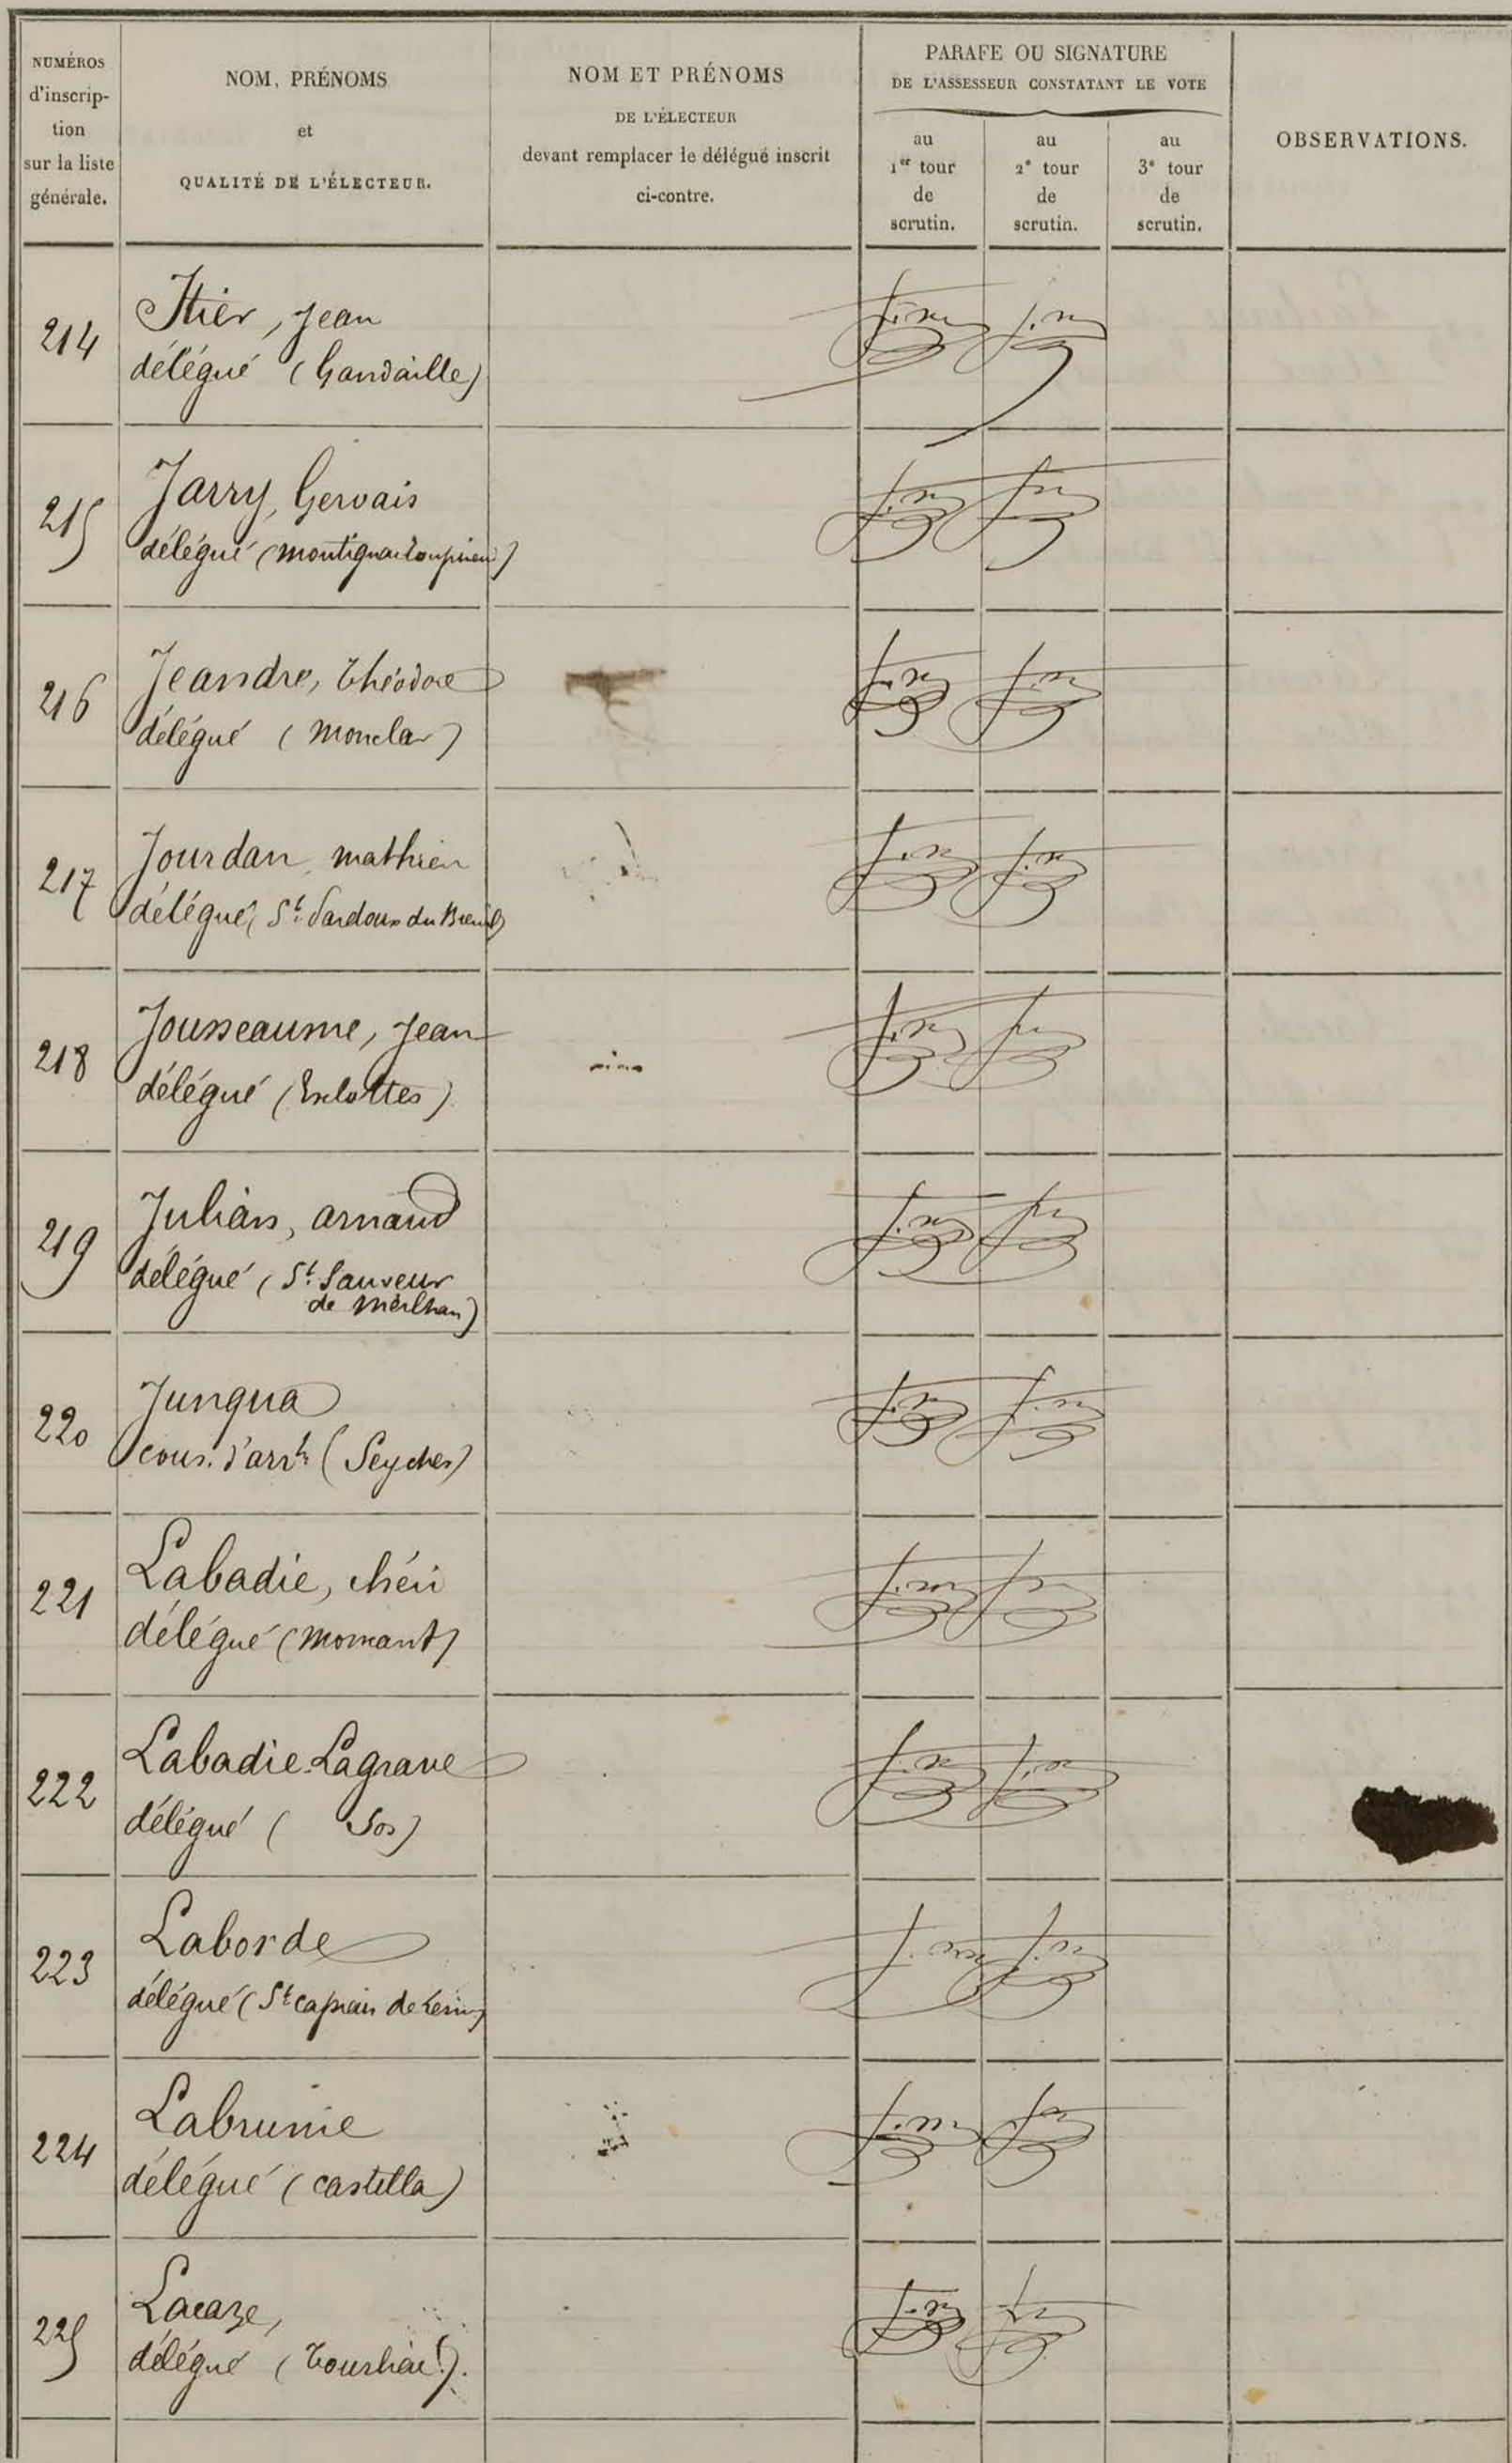 NUMÉROS
d'inscrip-
tion
sur la liste
générale.
NOM, PRÉNOMS
et
QUALITÉ DE L'ÉLECTEUR.
NOM ET PRÉNOMS
DE L'ÉLECTEUR
devant remplacer le délégué inscrit
ci-contre.
PARAFE OU SIGNATURE
DE L'ASSESSEUR CONSTATANT LE VOTE
au
1er tour
de
scrutin.
au
2e tour
de
scrutin.
au
3e tour
de
scrutin.
OBSERVATIONS.
214
Itier, Jean
délégué (Gandaille)
215
Jarry, Gervais
délégué (
216
Jeandre, Théodore
délégué (Monclar)
217
Jourdan, Mathieu
délégué, St. Pardoux du Breuil)
218
Jousseaume, Jean
délégué (Esclottes)
219
Julian, arnaud
délégué (St. Sauveur
de Meilhan)
220
Jungua
cons. d'arrt (Seyches)
221
Labadie, chéri
délégué (
222
Labadie-Lagrave
délégué ( Sos)
223
Laborde
délégué (St caprais de Lerm)
224
Labrunie
délégué (castella)
225
Lacaze,
délégué (Tourliac).